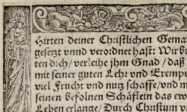 Hirten deiner Christlichen Gema
gesetzt vnnd verordnet hast: Wir b
ten dich/ verleihe jhm Gnad/ daß
mit seiner guten Lehr vnd Exempe
viel Frucht vnd nutz schaffe/ vnd s
seinen befolnen Schäflein das ew
Leben erlange/ Durch Christum